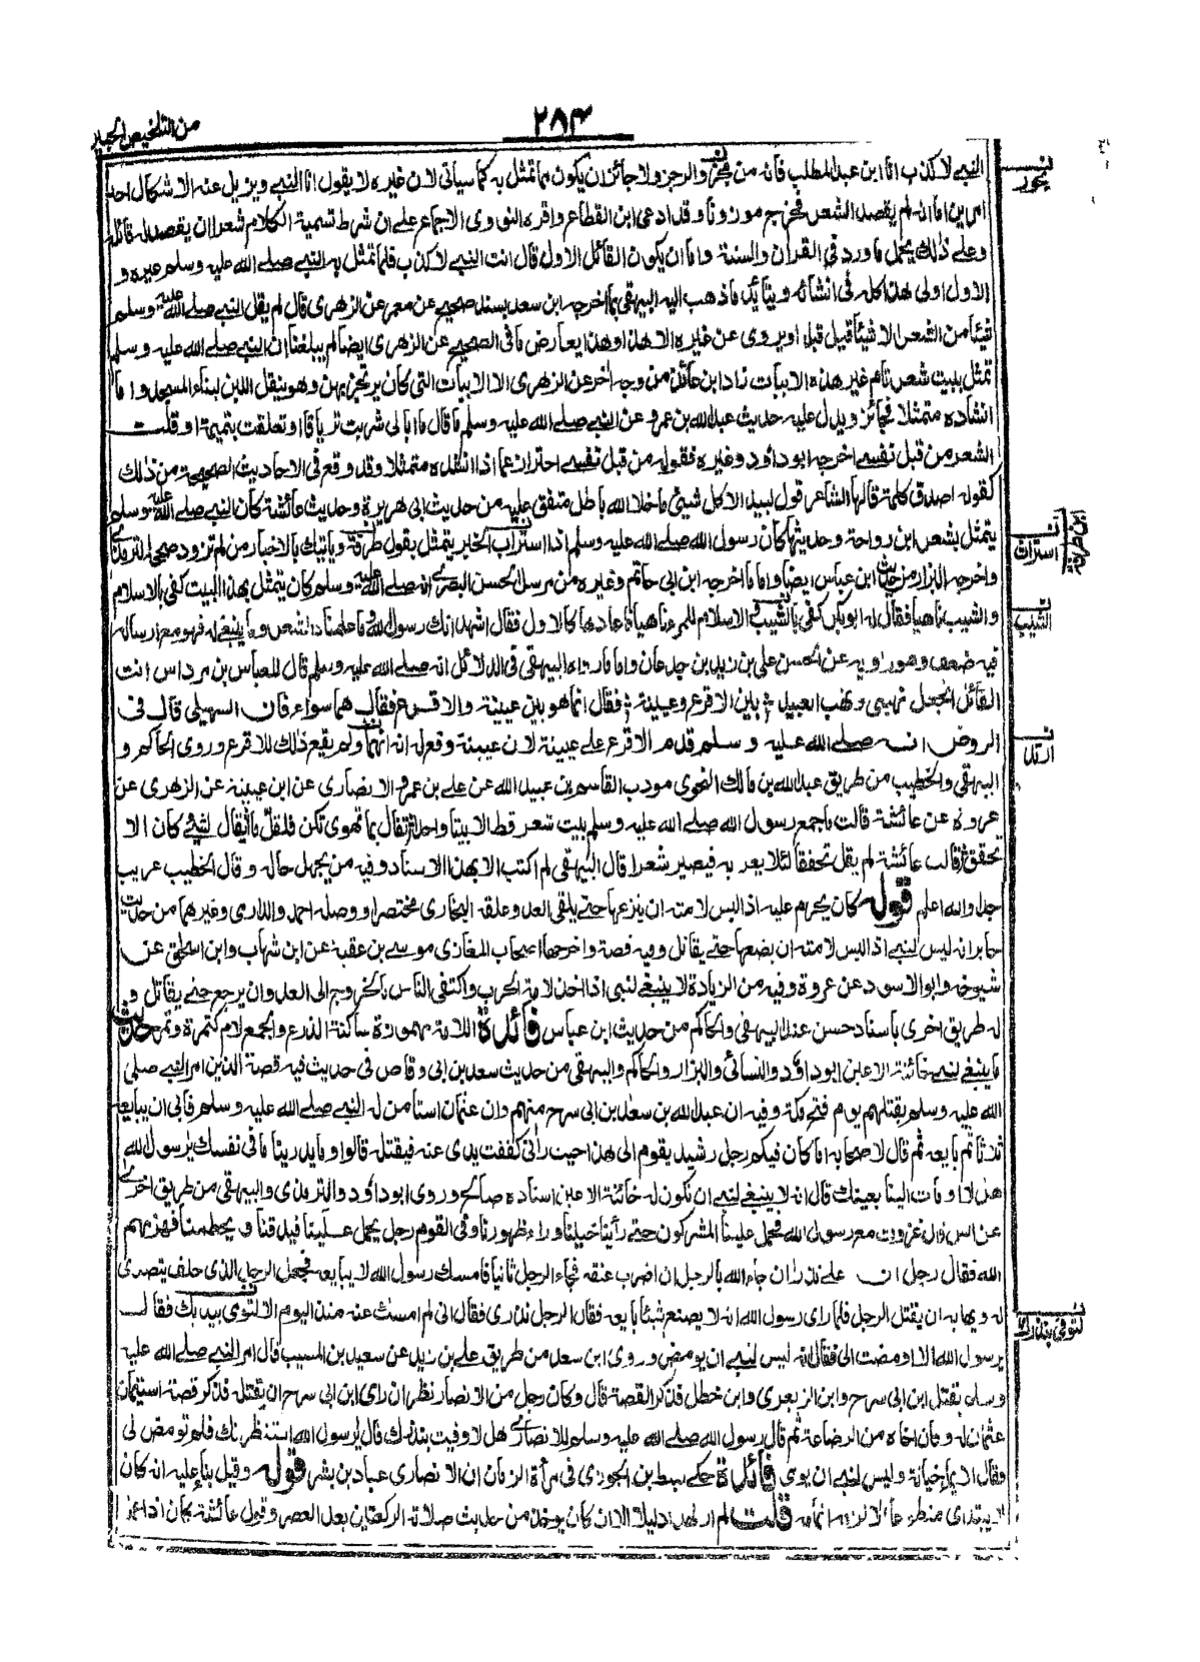 من التلخيص الحبير
٢٨٣
النبي لا كذب انا ابن عبد المطلب فانه من بحر والرجز ولا جائز ان يكون مما تمثل به كما سياتي لان غيره لا يقول انا النبي ويزيل عنه الاشكال احد
امرين اما انه لم يقصد الشعر فخرج موزونا وقد ادعى ابن القطاع واقره النووى الاجماع على ان شرط تسمية الكلام شعرا ان يقصد له قائله
وعلى ذلك يحمل ما ورد في القران والسنة واما ان يكون القائل الاول قال انت النبي لا كذب فلما تمثل به النبي صلى الله عليه وسلم غيره و
الاول اولى هذا كله في انشائه ويتأيد ما ذهب اليه البيهقى بما اخرجه ابن سعد بسند صحيح عن معمر عن الزهرى قال لم يقل النبي صلى الله عليه وسلم
شيئا من الشعر الا شيئا قيل قبله او يروى عن غيره الا هذا وهذا يعارض ما في الصحيح عن الزهرى ايضا لم يبلغنا ان النبي صلى الله عليه وسلم
تمثل ببيت شعر تام غير هذه الابيات زاد ابن عائذ من وجه اخر عن الزهرى الا الابيات التى كان يرتجز بهن وهو ينقل اللبن لبناء المسجد واما
انشاده متمثلا فجائز ويدل عليه حديث عبد الله بن عمرو عن النبي صلى الله عليه وسلم ما قال ما ابالى شربت ترياقا او تعلقت بتميمة او قلت
الشعر من قبل نفسى اخرجه ابو داود وغيره فقوله من قبل نفسى احتراز عما اذا انشده متمثلا وقد وقع في الاحاديث الصحيحة من ذلك
كقوله اصدق كلمة قالها الشاعر قول لبيد الا كل شيئ ما خلا الله باطل متفق عليه من حديث ابى هريرة وحديث عائشة كان النبي صلى الله عليه وسلم
يتمثل بشعر ابن رواحة وحديثها كان رسول الله صلى الله عليه وسلم اذا استراب الخبر يتمثل بقول طرفة ويأتيك بالاخبار من لم تزود صححه الترمذى
واخرجه البزار من حديث ابن عباس ايضا واما ما اخرجه ابن ابى حاتم وغيره من مرسل الحسن البصرى انه صلى الله عليه وسلم كان يتمثل بهذا البيت كفى بالاسلام
والشيب ناهيا فقال له ابو بكر كفى بالشيب والاسلام للمرء ناهيا فاعادها كالاول فقال اشهد انك رسول الله وما علمناه الشعر وما ينبغى له فهو مع ارساله
فيه ضعف وهو راويه عن الحسن على بن زيد بن جدعان واما ما رواه البيهقى في الدلائل انه صلى الله عليه وسلم قال للعباس بن مرداس انت
القائل اتجعل نهبى ونهب العبيد بين الاقرع وعيينة فقال انما هو بين عيينة والاقرع فقال هما سواء فان السهيلى قال في
الروض انه صلى الله عليه وسلم قدم الاقرع على عيينة لان عيينة وقع له انه ارتد ولم يقع ذلك للاقرع وروى الحاكم و
البيهقى والخطيب من طريق عبد الله بن مالك النحوى مودب القاسم بن عبيد الله عن على بن عمرو الانصارى عن ابن عيينة عن الزهرى عن
عروة عن عائشة قالت ما جمع رسول الله صلى الله عليه وسلم بيت شعر قط الا بيتا واحدا تفال بما تهوى تكن فلقل ما يقال لشئ كان الا
تحقق قالت عائشة لم يقل تحققا لئلا يعرب به فيصير شعرا قال البيهقى لم اكتب الا بهذا الاسناد وفيه من يجهل حاله وقال الخطيب غريب
جدا والله اعلم قوله كان يحرم عليه اذا لبس لامته ان ينزعها حتى يلقى العدو علقه البخارى مختصرا ووصله احمد والدارمى وغيرهما من حديث
جابر انه ليس لنبى اذا لبس لامته ان يضعها حتى يقاتل وفيه قصة واخرجها اصحاب المغازى موسى بن عقبة عن ابن شهاب وابن اسحق عن
شيوخه وابو الاسود عن عروة وفيه من الزيادة لا ينبغى لنبى اذا اخذ لامة الحرب واكتفى الناس بالخروج الى العدو ان يرجع حتى يقاتل و
له طريق اخرى باسناد حسن عند البيهقى والحاكم من حديث ابن عباس فائدة اللامة مهموزة ساكنة الدرع والجمع لام كتمرة وتمر حديث
ما ينبغى لنبى خائنة الاعين ابو داود والنسائى والبزار والحاكم والبيهقى من حديث سعد بن ابى وقاص في حديث فيه قصة الذين امر النبي صلى
الله عليه وسلم بقتلهم يوم فتح مكة وفيه ان عبد الله بن سعد بن ابى سرح منهم وان عثمان استامن له النبي صلى الله عليه وسلم فابى ان يبايعه
ثلاثا ثم بايعه ثم قال لاصحابه اما كان فيكم رجل رشيد يقوم الى هذا حيث رأنى كففت يدى عنه فيقتله قالوا وما يدرينا ما في نفسك يرسول الله
هلا اومأت الينا بعينك قال انه لا ينبغى لنبى ان تكون له خائنة الاعين اسناده صالح وروى ابو داود والترمذى والبيهقى من طريق اخرى
عن انس قال غزوت مع رسول الله فحمل علينا المشركون حتى رأينا خيلنا وراء ظهورنا وفي القوم رجل يحمل علينا فيدقنا ويحطمنا فهزمهم
الله فقال رجل ان على نذرا ان جاء الله بالرجل ان اضرب عنقه فجاء الرجل ثانيا فامسك رسول الله لا يبايعه فجعل الرجل الذى حلف يتصدى
له ويهابه ان يقتل الرجل فلما راى رسول الله انه لا يصنع شيئا بايعه فقال الرجل نذرى فقال انى لم امسك عنه منذ اليوم الا لتوفى بنذرك فقال
يرسول الله الا اومضت الى فقال انه ليس لنبى ان يومض وروى ابن سعد من طريق على بن زيد عن سعيد بن المسيب قال امر النبي صلى الله عليه
وسلم بقتل ابن ابى سرح وابن الزبعرى وابن خطل فذكر القصة قال وكان رجل من الانصار نظر ان راى ابن ابى سرح ان يقتله فذكر قصة استيمان
عثمان له وكان اخاه من الرضاعة ثم قال رسول الله صلى الله عليه وسلم للانصارى هل لا وفيت بنذرك قال يرسول الله استنظرتك فلم تومض لى
وقال الايماء خيانة وليس لنبى ان يومى فائدة حكى سبط بن الجوزى في مرأة الزمان ان الانصارى عباد بن بشر قوله وقيل بناء عليه انه كان
لا يبتدى متطوعا الا لزمه اتمامه قلت لم ار لهذا دليلا الا ان كان يوخذ من حديث صلاته الركعتين بعد العصر وقول عائشة كان اذا عمل
بحور
استراث
الشيب
ارتد
لتوفى بنذرك